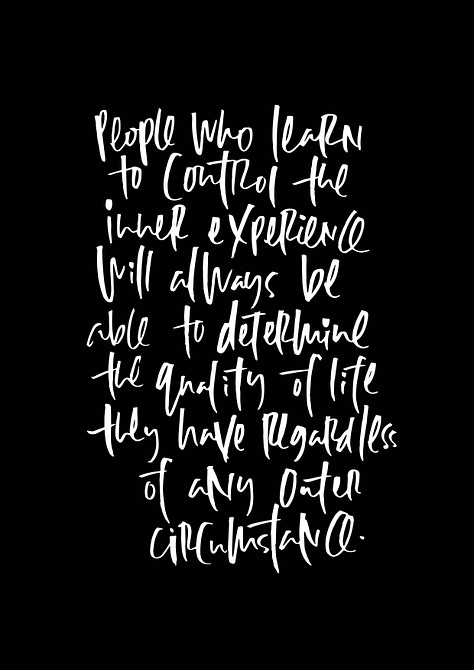 People who learn
to control the
inner experience
will always be
able to determine
the quality of life
they have regardless
of any outer
circumstance.